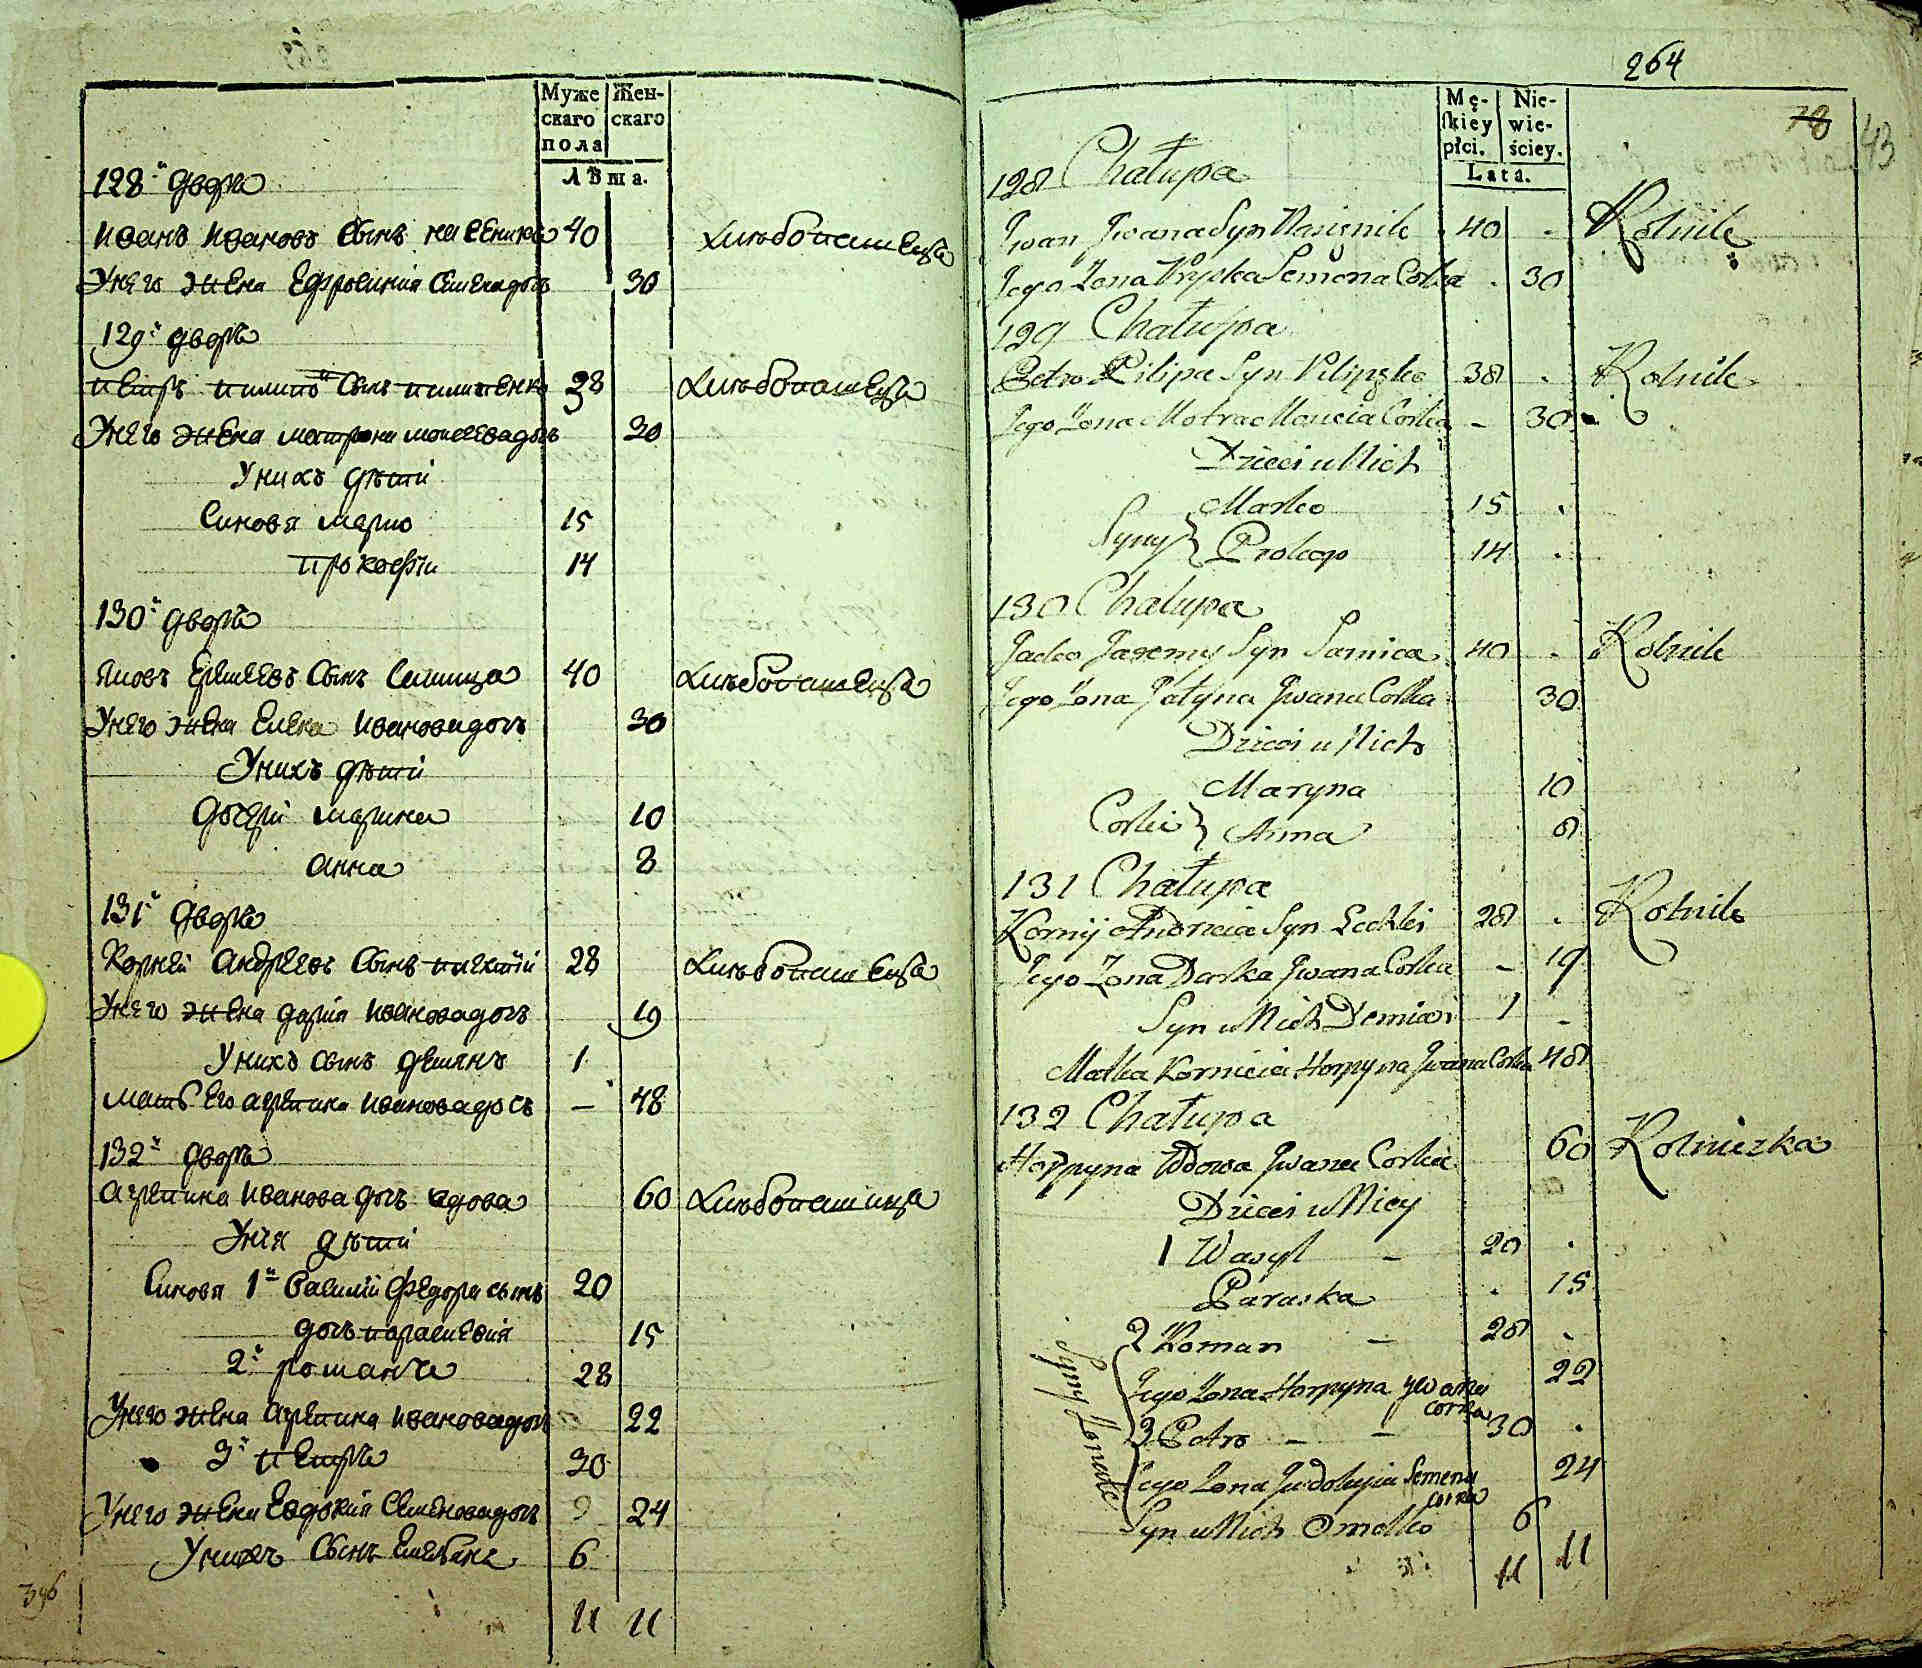 Муже
скаго
пола
Жен-
скаго
Лѣта.
128й дворъ
Иванъ Ивановъ сынъ насеника 40 хлѣбопашецъ
У него жена Ефросиния Семенадочь 30
129й дворъ
Петръ пилипъ сынъ пилипенко 38 хлѣбопашецъ
У него жена матрона моисеевадочь 30
У нихъ дѣти
Синовя марко 15
прокофъи 14
130й дворъ
Яковъ Еремеевъ сынъ Самица 40 хлѣбопашецъ
У него жена Елена Ивановадочь 30
У нихъ дѣти
дочери марина 10
анна 8
131й дворъ
Корней Андреевъ сынъ 28 хлѣбопашецъ
У него жена дария Ивановадочь 19
У нихъ сынъ демянъ 1
мать его агрепина Ивановадочь — 48
132й дворъ
агрепина Иванова дочь вдова 60 хлѣбопашица
У нея дѣти
Синовя 1й Василий Федора сынъ 20
дочь параскевия 15
2й романъ 28
У него жена агрепина Ивановадочь 22
3й петръ 30
У него жена Евдокия Семеновадочь 24
У нихъ сынъ 6
11 11
396
264
78
43
Mę-
skiey
płci.
Nie-
wie-
ściey.
Lata.
128 Chałupa
Iwan Iwana Syn Nasiennik 40 . Rolnik
Jego Zona Pryska Semena Corka . 30
129 Chałupa
Petro Pilipa Syn Pilipzko 38 . Rolnik
Jego Zona Motra Maucia Corka - 30
Dzieci u Nich
Marko 15 .
Syny Prokop 14 .
130 Chałupa
Jacko Jaremy Syn Samica 40 . Rolnik
Jego Zona Jalyna Iwana Corka 30
Dzieci u Nich
Maryna 10
Corki Anna 8
131 Chałupa
Kornij Andrieia Syn 28 . Rolnik
Jego Zona Darka Iwana Corka - 19
Syn u Nich Demian 1 -
Matka Kornieia Horpyna Iwana Corka 48
132 Chałupa
Horpyna Wdowa Iwana Corka 60 Rolniczka
Dzieci u Niey
1 Wasyl - 20 .
Paraska . 15
2 Roman - 28 .
Jego Zona Horpyna Iwana Corka 22
3 Petro - - 30 .
Jego Zona Judokyia Semena Corka 24
Syn u Nich Omelko 6
Syny Zonate
11 11